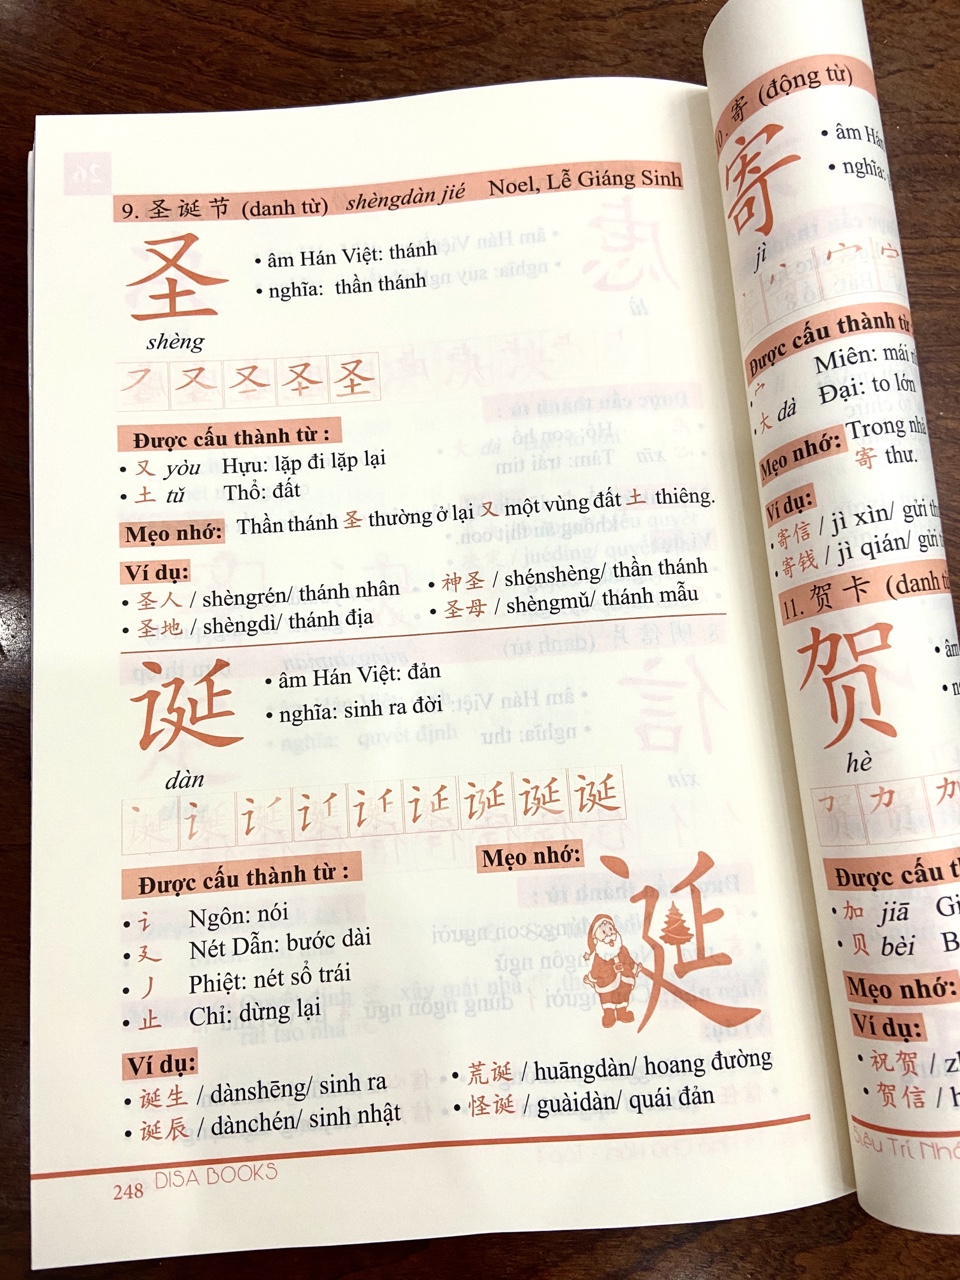 9. 圣诞节 (danh từ) shèngdàn jié Noel, Lễ Giáng Sinh
圣
shèng
• âm Hán Việt: thánh
• nghĩa: thần thánh
Được cấu thành từ :
• 又 yòu Hựu: lặp đi lặp lại
• 土 tǔ Thổ: đất
Mẹo nhớ: Thần thánh 圣 thường ở lại 又 một vùng đất 土 thiêng.
Ví dụ:
• 圣人 / shèngrén/ thánh nhân
• 圣地 / shèngdì/ thánh địa
• 神圣 / shénshèng/ thần thánh
• 圣母 / shèngmǔ/ thánh mẫu
诞
dàn
• âm Hán Việt: đản
• nghĩa: sinh ra đời
Được cấu thành từ :
• 讠 Ngôn: nói
• 廴 Nét Dẫn: bước dài
• 丿 Phiệt: nét sổ trái
• 止 Chỉ: dừng lại
Mẹo nhớ:
诞
Ví dụ:
• 诞生 / dànshēng/ sinh ra
• 诞辰 / dànchén/ sinh nhật
• 荒诞 / huāngdàn/ hoang đường
• 怪诞 / guàidàn/ quái đản
248 DISA BOOKS
10. 寄 (động từ)
寄
jì
• âm Hán
• nghĩa:
Được cấu thành từ
• 宀 Miên: mái
• 大 dà Đại: to lớn
Mẹo nhớ: Trong nhà
寄 thư.
Ví dụ:
• 寄信 / jì xìn/ gửi
• 寄钱 / jì qián/ gửi
11. 贺卡 (danh
贺
hè
• âm
Được cấu
• 加 jiā
• 贝 bèi
Mẹo nhớ:
Ví dụ:
• 祝贺 /
• 贺信 /
Siêu Trí Nhớ